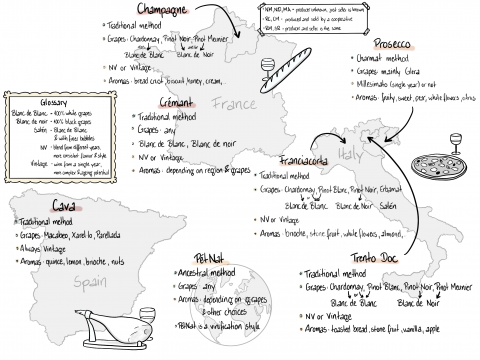 Champagne
• Traditional method
• Grapes: Chardonnay, Pinot Noir, Pinot Meunier
Blanc de Blanc Blanc de Noir
• NV or Vintage
• Aromas: bread crust, biscuit, honey, cream,...
- NM, ND, MA = produced unknown, just seller is known
- RC, CM = produced and sold by a cooperative
= produced and seller is the same
Prosecco
• Charmat method
• Grapes: mainly Glera
• Millesimato (single year) or not
• Aromas: fruity, sweet, pear, white flowers, citrus
France
Crémant
• Traditional method
• Grapes: any
• Blanc de Blanc, Blanc de noir
• NV or Vintage
• Aromas: depending on region & grapes
Glossary
Blanc de Blanc - 100% white grapes
Blanc de noir - 100% black grapes
Satén - Blanc de Blanc
& with finer bubbles
NV - blend from different years,
more consistent flavour & style
Vintage - wine from a single year,
more complex & ageing potential
Italy
Franciacorta
• Traditional method
• Grapes: Chardonnay, Pinot Blanc, Pinot Noir, Erbamat
Blanc de Blanc Blanc de Noir Satén
• NV or Vintage
• Aromas: brioche, stone fruit, white flowers, almond,
Cava
• Traditional method
• Grapes: Macabeo, Xarel·lo, Parellada
• Always Vintage
• Aromas: quince, lemon, brioche, nuts
Spain
Pét Nat
• Ancestral method
• Grapes: any
• Aromas: depending on grapes
& other choices
• PétNat is a vinification style
Trento Doc
• Traditional method
• Grapes: Chardonnay, Pinot Blanc, Pinot Noir, Pinot Meunier
Blanc de Blanc Blanc de Noir
• NV or Vintage
• Aromas: toasted bread, stone fruit, vanilla, apple